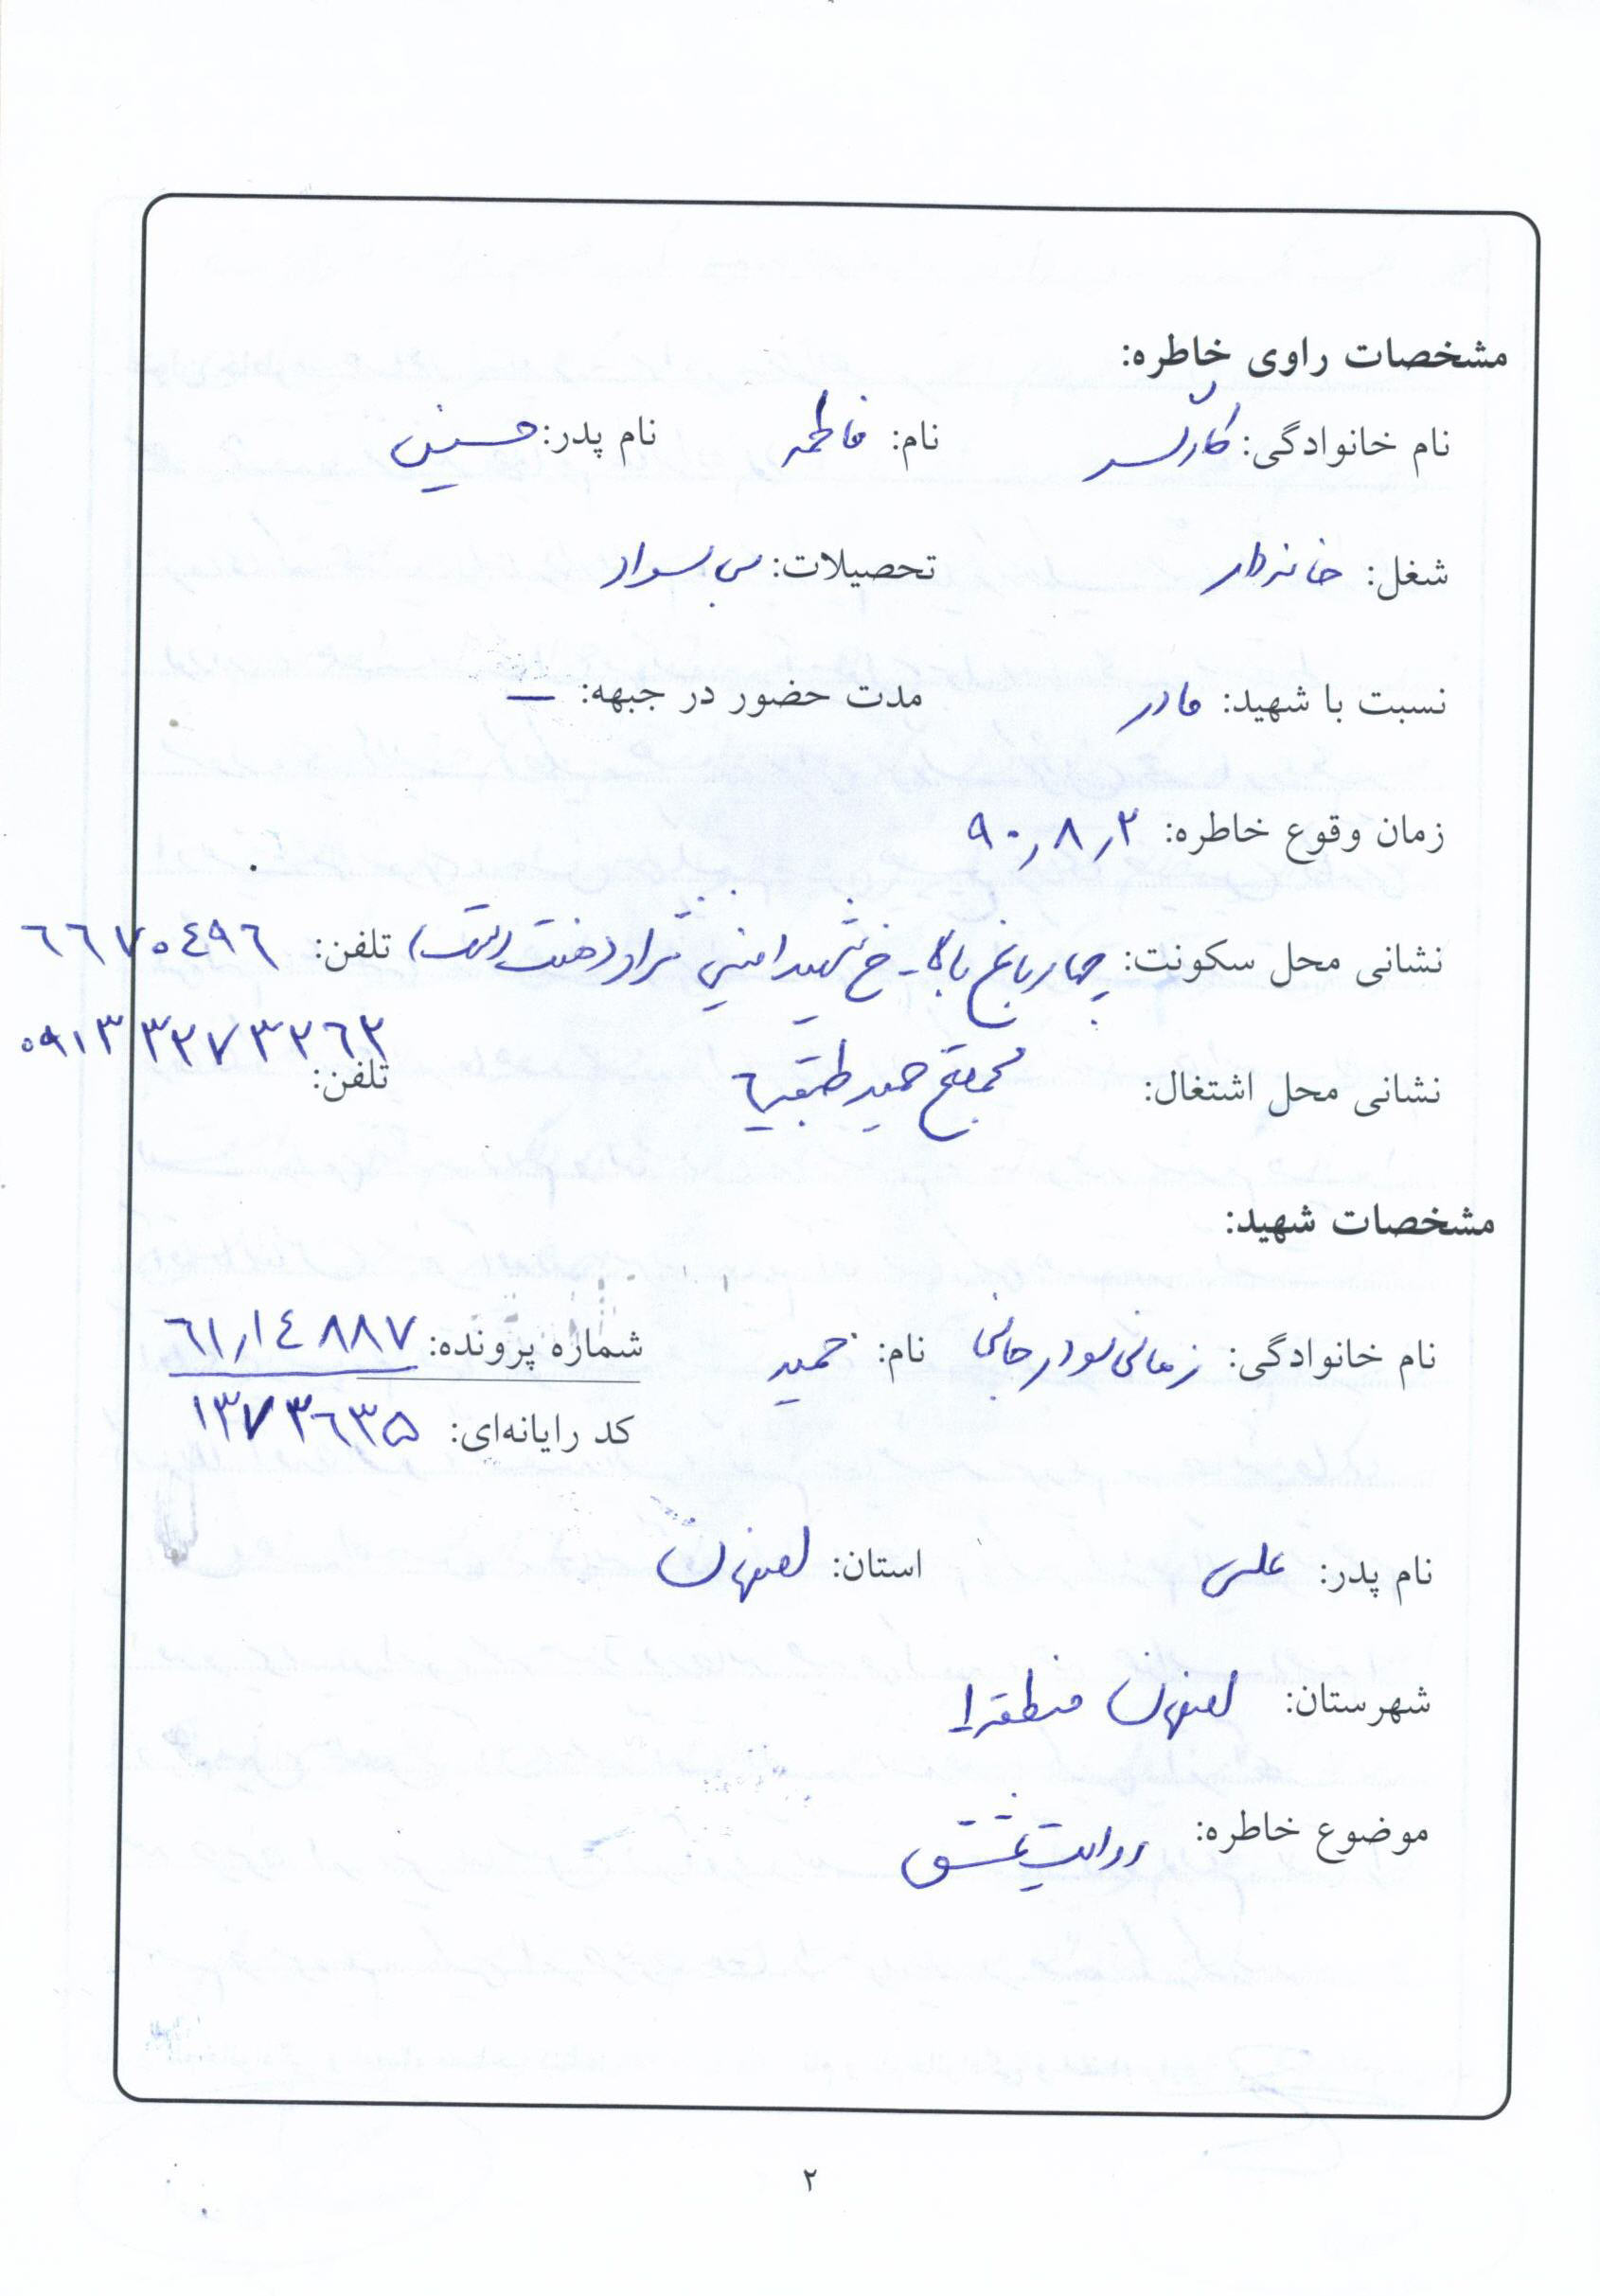 مشخصات راوی خاطره:
نام خانوادگی: کارگر نام: فاطمه نام پدر: حسین
شغل: خانه‌دار تحصیلات: بی سواد
نسبت با شهید: مادر مدت حضور در جبهه: —
زمان وقوع خاطره: ۹۰٫۸٫۲
نشانی محل سکونت: چهارباغ بالا - خ شهید امینی نژاد (هشت بهشت) تلفن: ۶۶۷۰۴۹۶
۰۹۱۳۳۲۷۳۲۶۲
نشانی محل اشتغال: مجتمع حمید طبقه ۲ تلفن:
مشخصات شهید:
نام خانوادگی: زمانی سودرجانی نام: حمید شماره پرونده: ۶۱٫۱۴۸۸۷
کد رایانه‌ای: ۱۳۷۳۶۳۵
نام پدر: علی استان: اصفهان
شهرستان: اصفهان منطقه ۱
موضوع خاطره: روایت عشق
۲